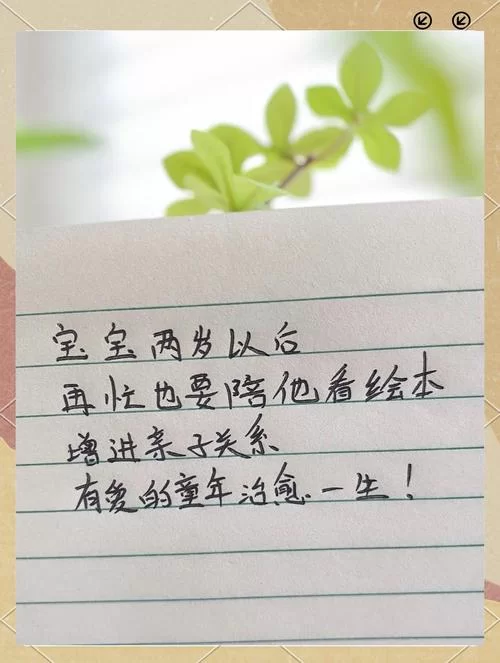 宝宝两岁以后
再忙也要陪他看绘本
增进亲子关系
有爱的童年治愈一生！